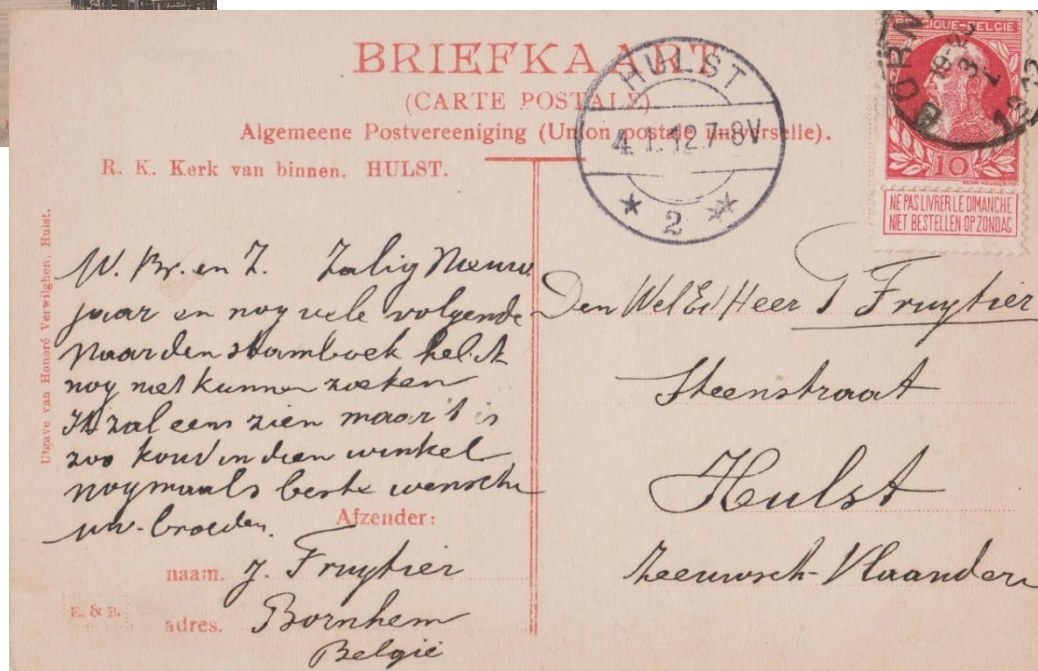 BRIEFKAART
(CARTE POSTALE).
Algemeene Postvereeniging (Union postale universelle).
R. K. Kerk van binnen. HULST.
Uitgave van Honoré Verwilghen, Hulst.
HULST
4.1.12.7-8V
2
BORN
18-
3
1
1912
BELGIQUE-BELGIE
10
NE PAS LIVRER LE DIMANCHE
NIET BESTELLEN OP ZONDAG
W. Br. en Z. Zalig Nieuw
jaar en nog vele volgende
Naar den stamboek heb ik
nog niet kunnen zoeken
Ik zal eens zien maar 't is
zoo koud in dien winkel
nogmaals beste wensche
uw broeder.
Afzender:
naam. J. Fruytier
adres. Bornhem
België
E. & B.
Den Wel Ed Heer Fruytier
Steenstraat
Hulst
Zeeuwsch-Vlaanderen